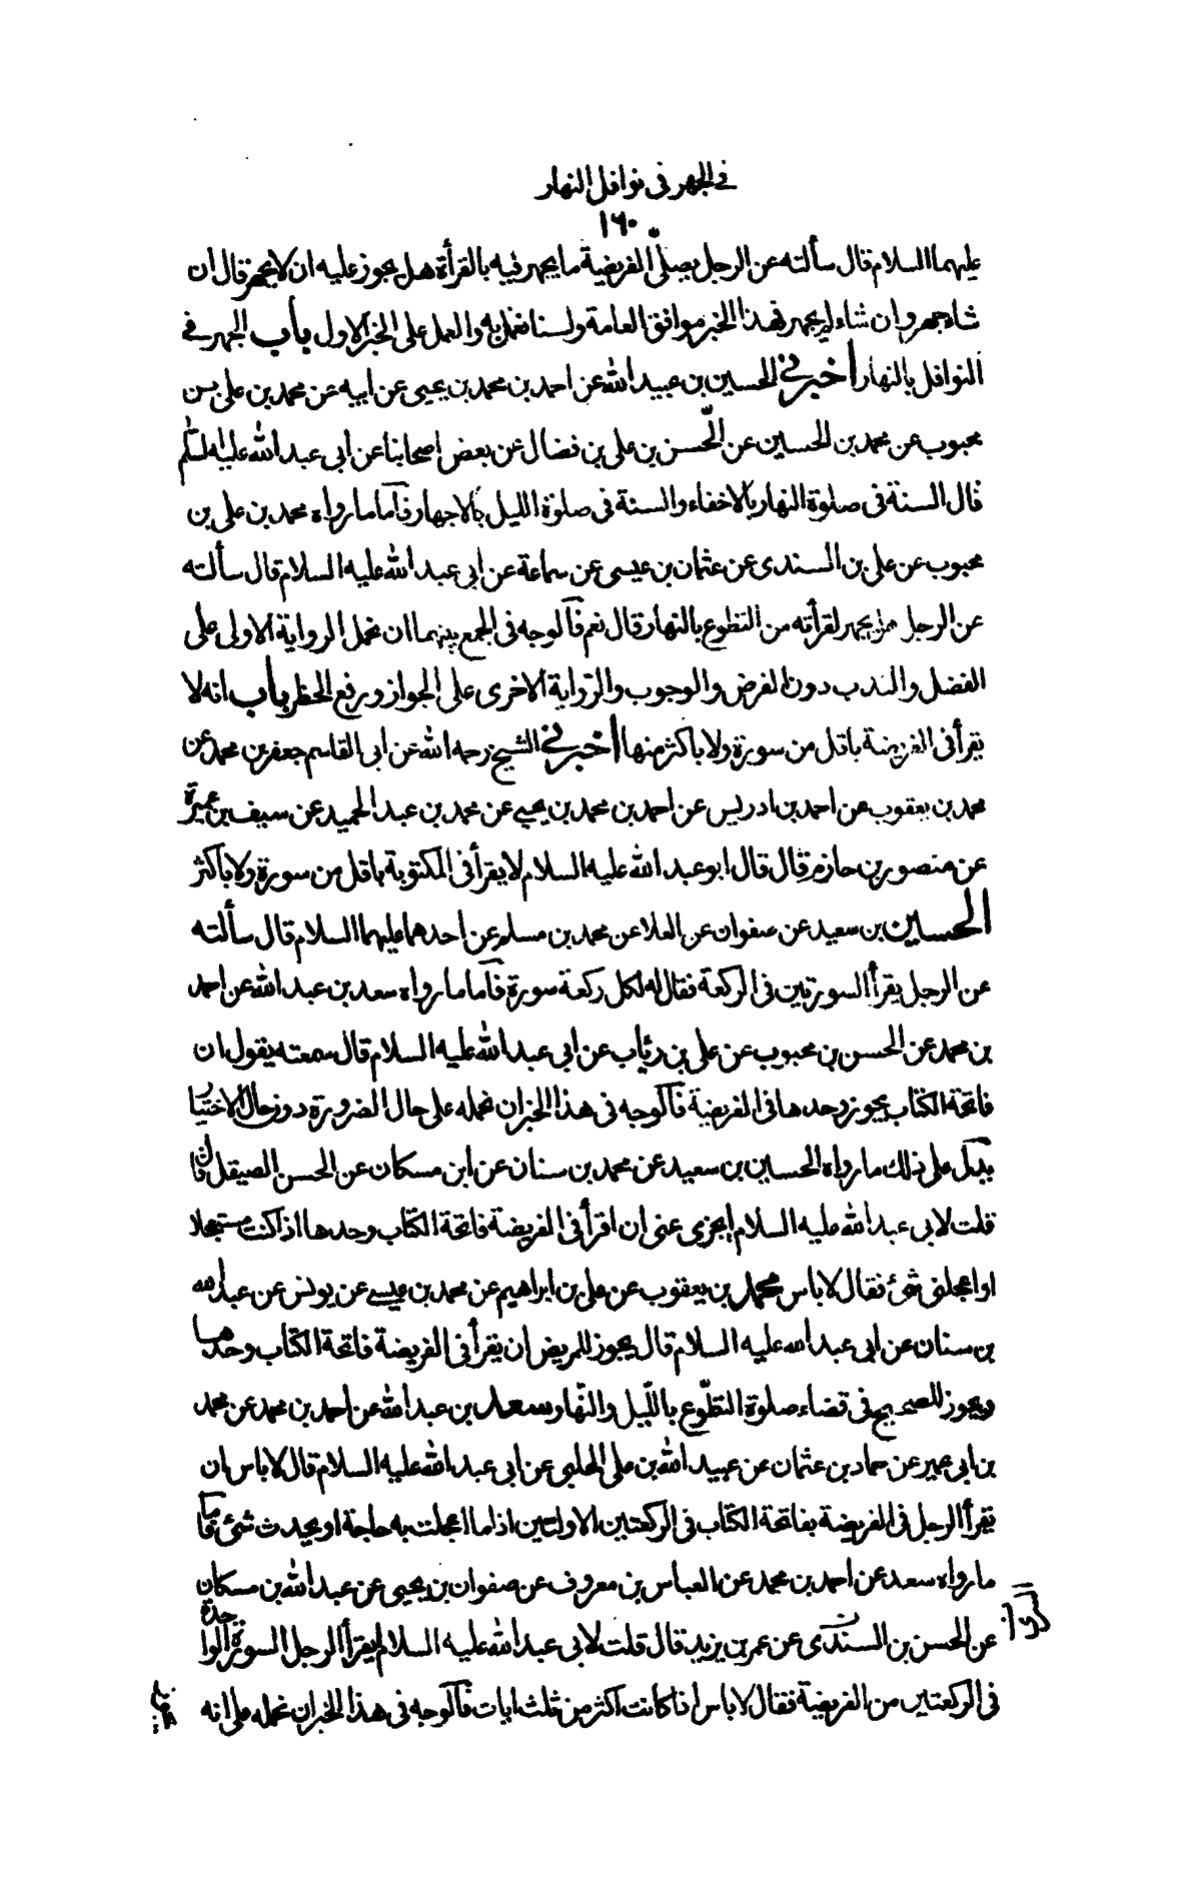 في الجهر في نوافل النهار
١٦٠
عليهما السلام قال سألته عن الرجل يصلى الفريضة ما يجهر فيه بالقرأة هل يجوز عليه ان لا يجهر قال ان
شاء جهر وان شاء لم يجهر فهذا الخبر موافق العامة ولسنا نعمل به والعمل على الخبر الاول باب الجهر في
النوافل بالنهار اخبرني الحسين بن عبيد الله عن احمد بن محمد بن يحيى عن ابيه عن محمد بن على بن
محبوب عن محمد بن الحسين عن الحسن بن على بن فضال عن بعض اصحابنا عن ابى عبد الله عليه السلم
قال السنة فى صلوة النهار بالاخفاء والسنة فى صلوة الليل بالاجهار فاما ما رواه محمد بن على بن
محبوب عن على بن السندى عن عثمان بن عيسى عن سماعة عن ابى عبد الله عليه السلام قال سألته
عن الرجل هل يجهر لقرأته من التطوع بالنهار قال نعم فالوجه فى الجمع بينهما ان نحمل الرواية الاولى على
الفضل والندب دون الفرض والوجوب والرواية الاخرى على الجواز ورفع الحظر باب انه لا
يقرأ فى الفريضة باقل من سورة ولا باكثر منها اخبرني الشيخ رحمه الله عن ابى القاسم جعفر بن محمد عن
محمد بن يعقوب عن احمد بن ادريس عن احمد بن محمد بن يحيى عن محمد بن عبد الحميد عن سيف بن عميرة
عن منصور بن حازم قال قال ابو عبد الله عليه السلام لا يقرأ فى المكتوبة باقل من سورة ولا باكثر
الحسين بن سعيد عن صفوان عن العلا عن محمد بن مسلم عن احدهما عليهما السلام قال سألته
عن الرجل يقرأ السورتين فى الركعة فقال له لكل ركعة سورة فاما ما رواه سعد بن عبد الله عن احمد
بن محمد عن الحسن بن محبوب عن على بن رئاب عن ابى عبد الله عليه السلام قال سمعته يقول ان
فاتحة الكتاب يجوز وحدها فى الفريضة فالوجه فى هذا الخبر ان نحمله على حال الضرورة دون حال الاختيار
يدل على ذلك ما رواه الحسين بن سعيد عن محمد بن سنان عن ابن مسكان عن الحسن الصيقل قال
قلت لابى عبد الله عليه السلام ايجزى عنى ان اقرأ فى الفريضة فاتحة الكتاب وحدها اذا كنت مستعجلا
او اعجلنى شئ فقال لا باس محمد بن يعقوب عن على بن ابراهيم عن محمد بن عيسى عن يونس عن عبد الله
بن سنان عن ابى عبد الله عليه السلام قال يجوز للمريض ان يقرأ فى الفريضة فاتحة الكتاب وحدها
ويجوز للصحيح فى قضاء صلوة التطوع بالليل والنهار سعد بن عبد الله عن احمد بن محمد عن محمد
بن ابى عمير عن حماد بن عثمان عن عبيد الله بن على الحلبى عن ابى عبد الله عليه السلام قال لا باس ان
يقرأ الرجل فى الفريضة بفاتحة الكتاب فى الركعتين الاولتين اذا ما اعجلت به حاجة او يحدث شئ فاما
ما رواه سعد عن احمد بن محمد عن العباس بن معروف عن صفوان بن يحيى عن عبد الله بن مسكان
عن الحسن بن السندى عن عمر بن يزيد قال قلت لابى عبد الله عليه السلام ايقرأ الرجل السورة الواحدة
فى الركعتين من الفريضة فقال لا باس اذا كانت اكثر من ثلث ايات فالوجه فى هذا الخبر ان نحمله على انه